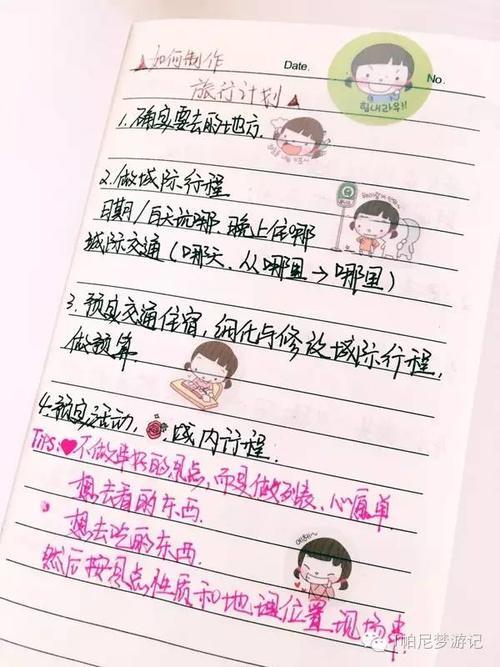 如何制作
Date.
No.
旅行计划
힘내라우!!
1. 确定要去的地方.
2. 做城际行程
日期/白天玩哪, 晚上住哪
城际交通 (哪天, 从哪里→哪里)
3. 预定交通住宿, 细化与修改城际行程,
做预算.
4. 预定活动, 城内行程.
Tips: ♥不做串好的景点, 而是做列表、心愿单
想去看的东西.
· 想去吃的东西.
然后按景点性质和地理位置现场串.
帕尼梦游记